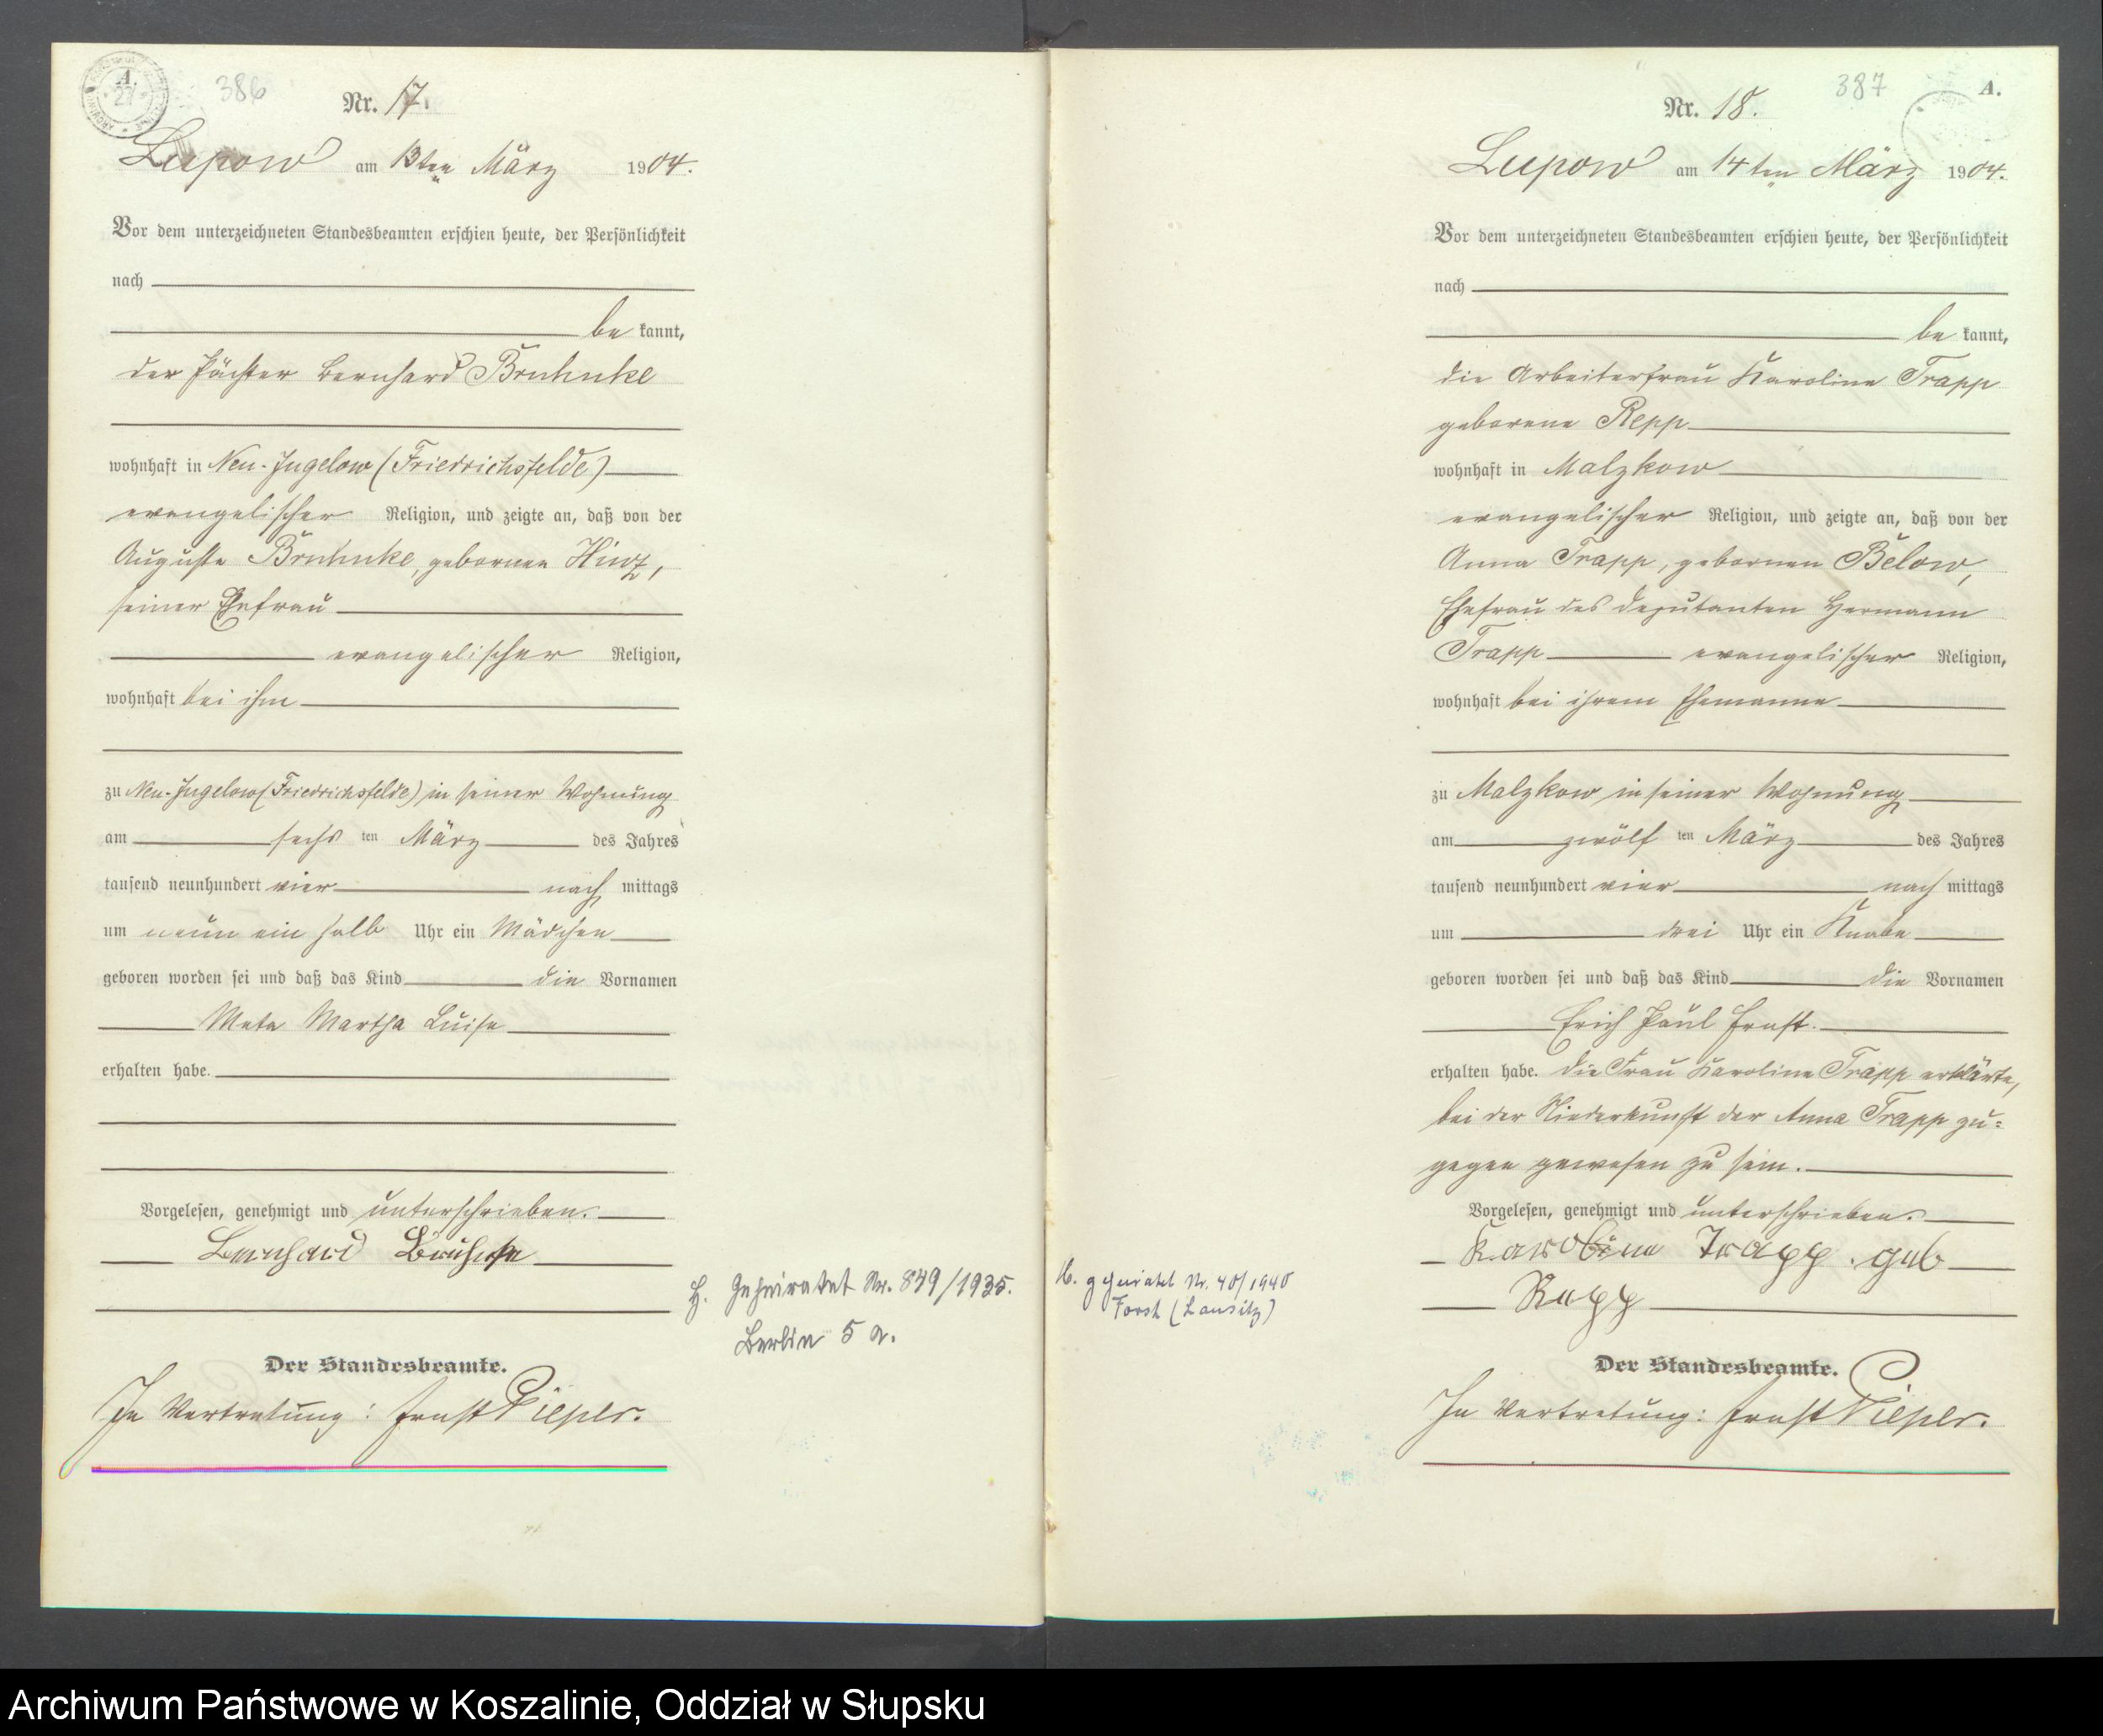 386
Nr. 17.
Lupow am 13ten März 1904.
Vor dem unterzeichneten Standesbeamten erschien heute, der Persönlichkeit
nach
be kannt,
der Pächter Bernhard Bruhnke
wohnhaft in Neu-Jugelow (Friedrichsfelde)
evangelischer Religion, und zeigte an, daß von der
Auguste Bruhnke, gebornen Hinz,
seiner Ehefrau
evangelischer Religion,
wohnhaft bei ihm
zu Neu-Jugelow (Friedrichsfelde) in seiner Wohnung
am sechs ten März des Jahres
tausend neunhundert vier nach mittags
um neun ein halb Uhr ein Mädchen
geboren worden sei und daß das Kind die Vornamen
Meta Martha Luise
erhalten habe.
Vorgelesen, genehmigt und unterschrieben.
Bernhard Bruhnke
H. Geheiratet Nr. 849/1935.
Berlin 5 a.
Der Standesbeamte.
In Vertretung: Ernst Pieper.
387
A.
Nr. 18.
Lupow am 14ten März 1904.
Vor dem unterzeichneten Standesbeamten erschien heute, der Persönlichkeit
nach
be kannt,
die Arbeiterfrau Karoline Trapp
geborene Repp
wohnhaft in Malzkow
evangelischer Religion, und zeigte an, daß von der
Anna Trapp, gebornen Below,
Ehefrau des Deputanten Hermann
Trapp evangelischer Religion,
wohnhaft bei ihrem Ehemanne
zu Malzkow in seiner Wohnung
am zwölf ten März des Jahres
tausend neunhundert vier nach mittags
um drei Uhr ein Knabe
geboren worden sei und daß das Kind die Vornamen
Erich Paul Ernst.
erhalten habe. Die Frau Karoline Trapp erklärte,
bei der Niederkunft der Anna Trapp zu=
gegen gewesen zu sein.
Vorgelesen, genehmigt und unterschrieben.
Karoline Trapp. geb
Repp
H. geheiratet Nr. 40/1940
Forst (Lausitz)
Der Standesbeamte.
In Vertretung: Ernst Pieper.
Archiwum Państwowe w Koszalinie, Oddział w Słupsku